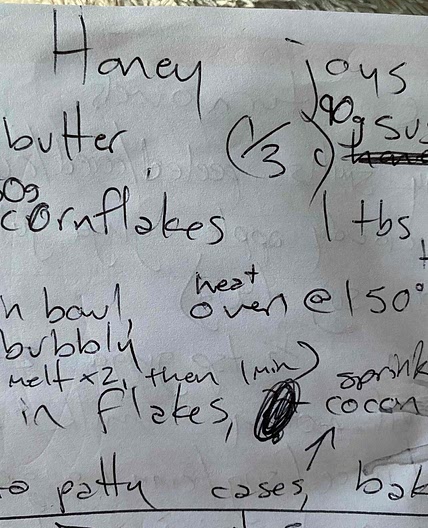 Honey joys
butter (1/3 c) 90g sug
00g
cornflakes 1 tbs
h bowl, heat oven @ 150°
bubbly
melt x2, then 1 min) sprink
in flakes, cocon
to patty cases, bak